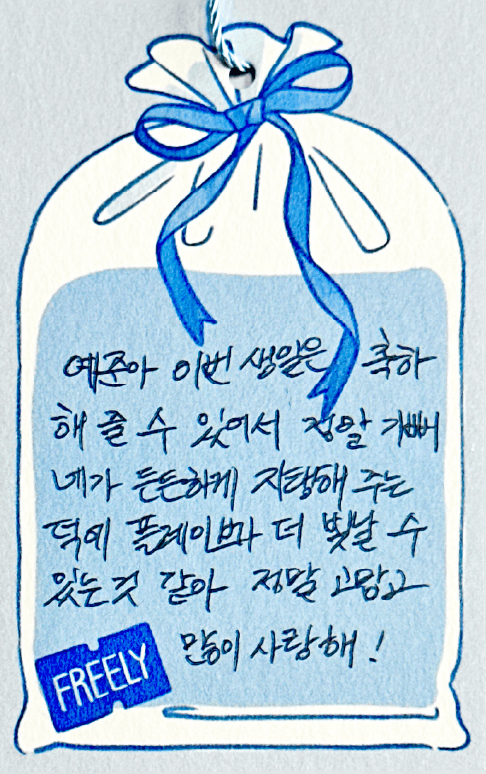 예준아 이번 생일은 축하
해 줄 수 있어서 정말 기뻐
네가 든든하게 지탱해 주는
덕에 플레이브가 더 빛날 수
있는 것 같아 정말 고맙고
많이 사랑해!
FREELY